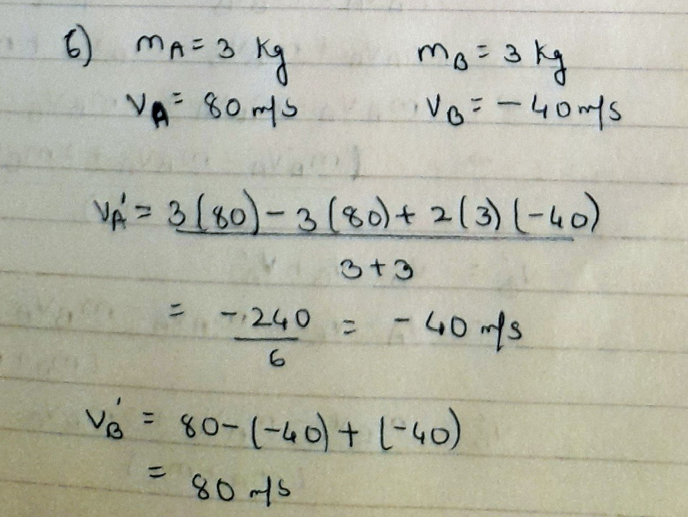 6) mA = 3 kg mB = 3 kg
vA = 80 m/s vB = - 40 m/s
vA' = 3(80) - 3(80) + 2(3)(-40)
3+3
= -240 = - 40 m/s
6
vB' = 80-(-40) + (-40)
= 80 m/s